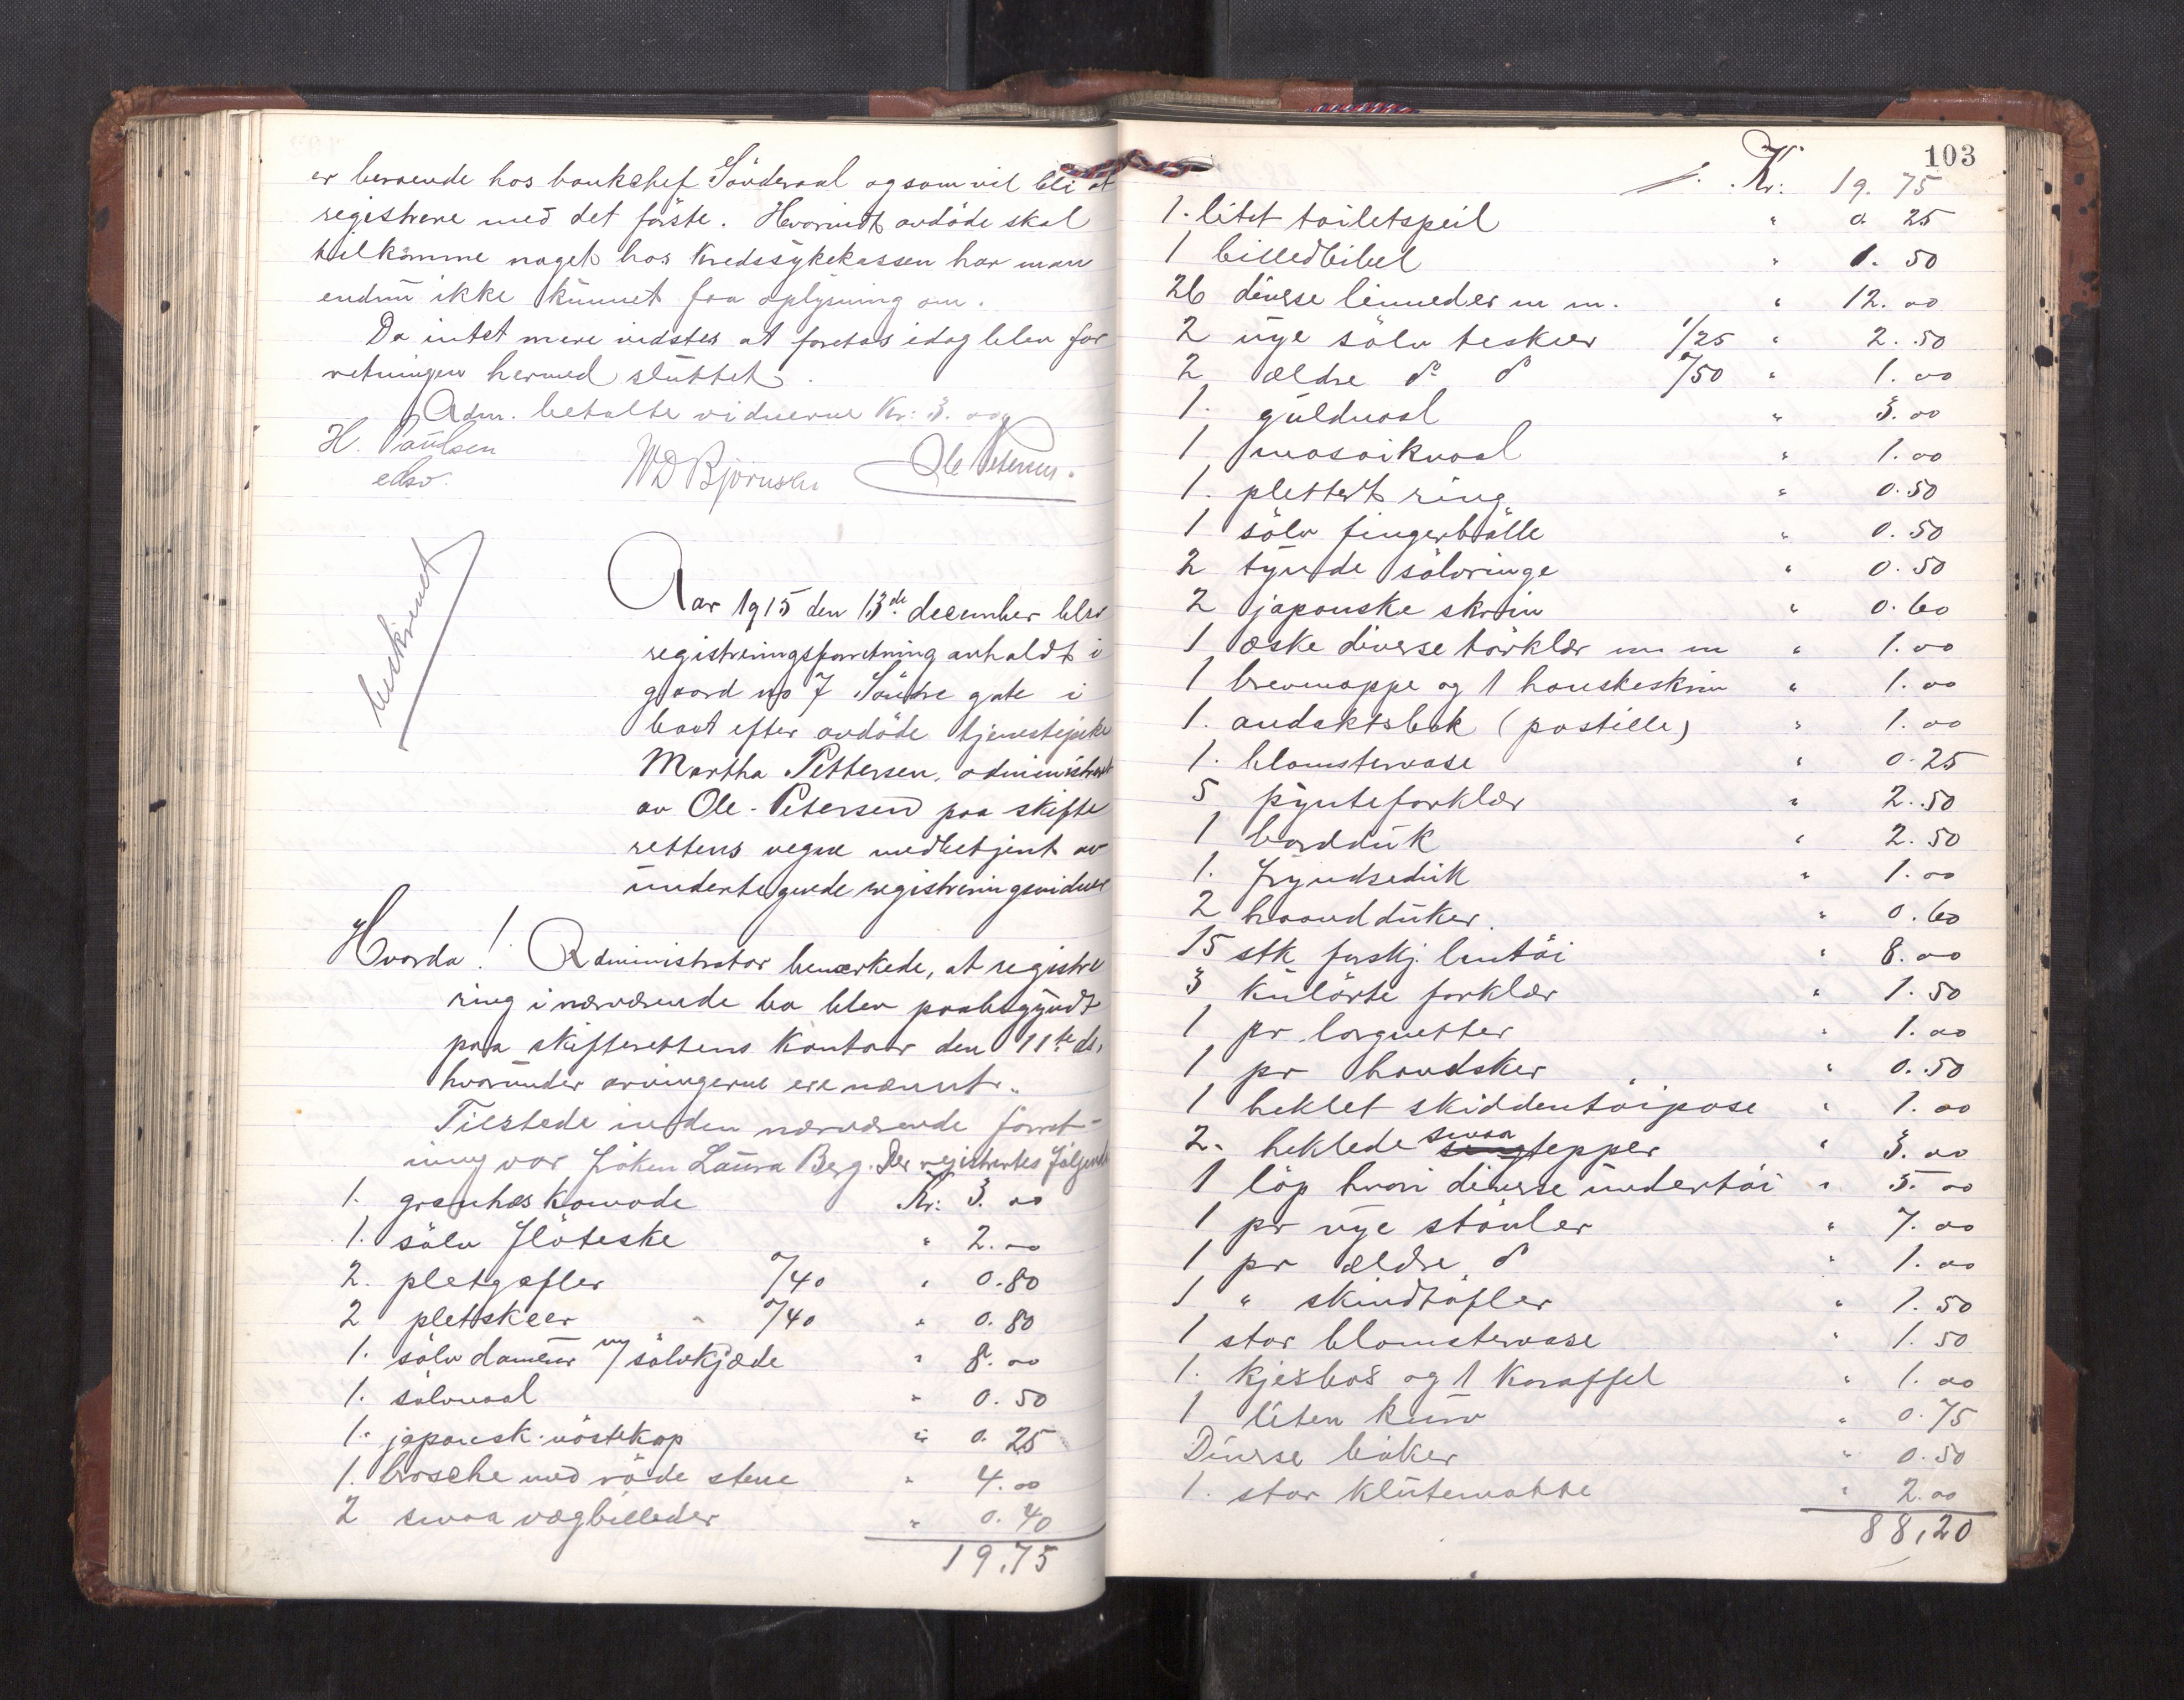 er beroende hos bankchef Sönderaal og som vil bli at
registrere med det förste. Hvorvidt avdöde skal
tilkomme noget hos Kredssykekassen har man
endnu ikke kunnet faa oplysning om.
Da intet mere vidstes at foretas idag blev for
retningen hermed sluttet.
Adm. betalte vidnerne Kr: 3.00
H. Paulsen
Ole Petersen.
beskrevet
Aar 1915 den 13de december blev
registreringsforretning avholdt i
gaard no 7 Söndre gate i
boet efter avdöde tjenestepike
Martha Pettersen, administrert
av Ole Petersen paa skifte
rettens vegne medbetjent av
undertegnede registreringsvidner
Hvorda! Administrator bemærkede, at registre
ring i nærværende bo blev paabegyndt
paa skifterettens Kontor den 11te ds.
hvorunder arvingerne ere nævnt.
Tilstede under nærværende forret-
ning var fröken Laura Berg. Der registrertes følgende
1. granhæs Komode Kr: 3.00
1. sölv flöteske " 2.00
2. pletgafler a/40 " 0.80
2 pletskeer " a/40 " 0.80
1. sölv dameur m/ sölvkjæde " 8.00
1. sölvnaal " 0.50
1. japansk nöstekop " 0.25
1. brosche med röde stene " 4.00
2 smaa vægbilleder " 0.40
19,75
103
Kr: 19.75
1. litet toiletspeil " 0.25
1 billedbibel " 1.50
26 diverse linneder m m. " 12.00
2 nye sölv teskeer 1/25 " 2.50
2 ældre do do a/50 " 1.00
1. guldnaal " 3.00
1 mosaiknaal " 1.00
1. plettert ring " 0.50
1 sölv fingerbölle " 0.50
2 tynde sölvringe " 0.50
2 japanske skrin " 0.60
1 æske diverse törklær m m " 1.00
1 brevmappe og 1 hanskeskrin " 1.00
1. andaktsbok (postille) " 1.00
1. blomstervase " 0.25
5 pynteforklær " 2.50
1 bordduk " 2.50
1. fryndseduk " 1.00
2 haandduker. " 0.60
15 stk forskj. lintöi " 8.00
3 kulörte forklær " 1.50
1 pr lorgnetter " 1.00
1 pr handsker " 0.50
1 heklet skiddentöipose " 1.00
2. heklede smaa tepper " 3.00
1 löp hvori diverse undertöi " 5.00
1 pr nye stövler " 7.00
1 pr ældre do " 1.00
1 " skindtöfler " 1.50
1 stor blomstervase " 1.50
1. kjeksbos og 1 Karaffel " 1.00
1 liten kurv " 0.75
Diverse böker " 0.50
1. stor klutematte " 2.00
88,20